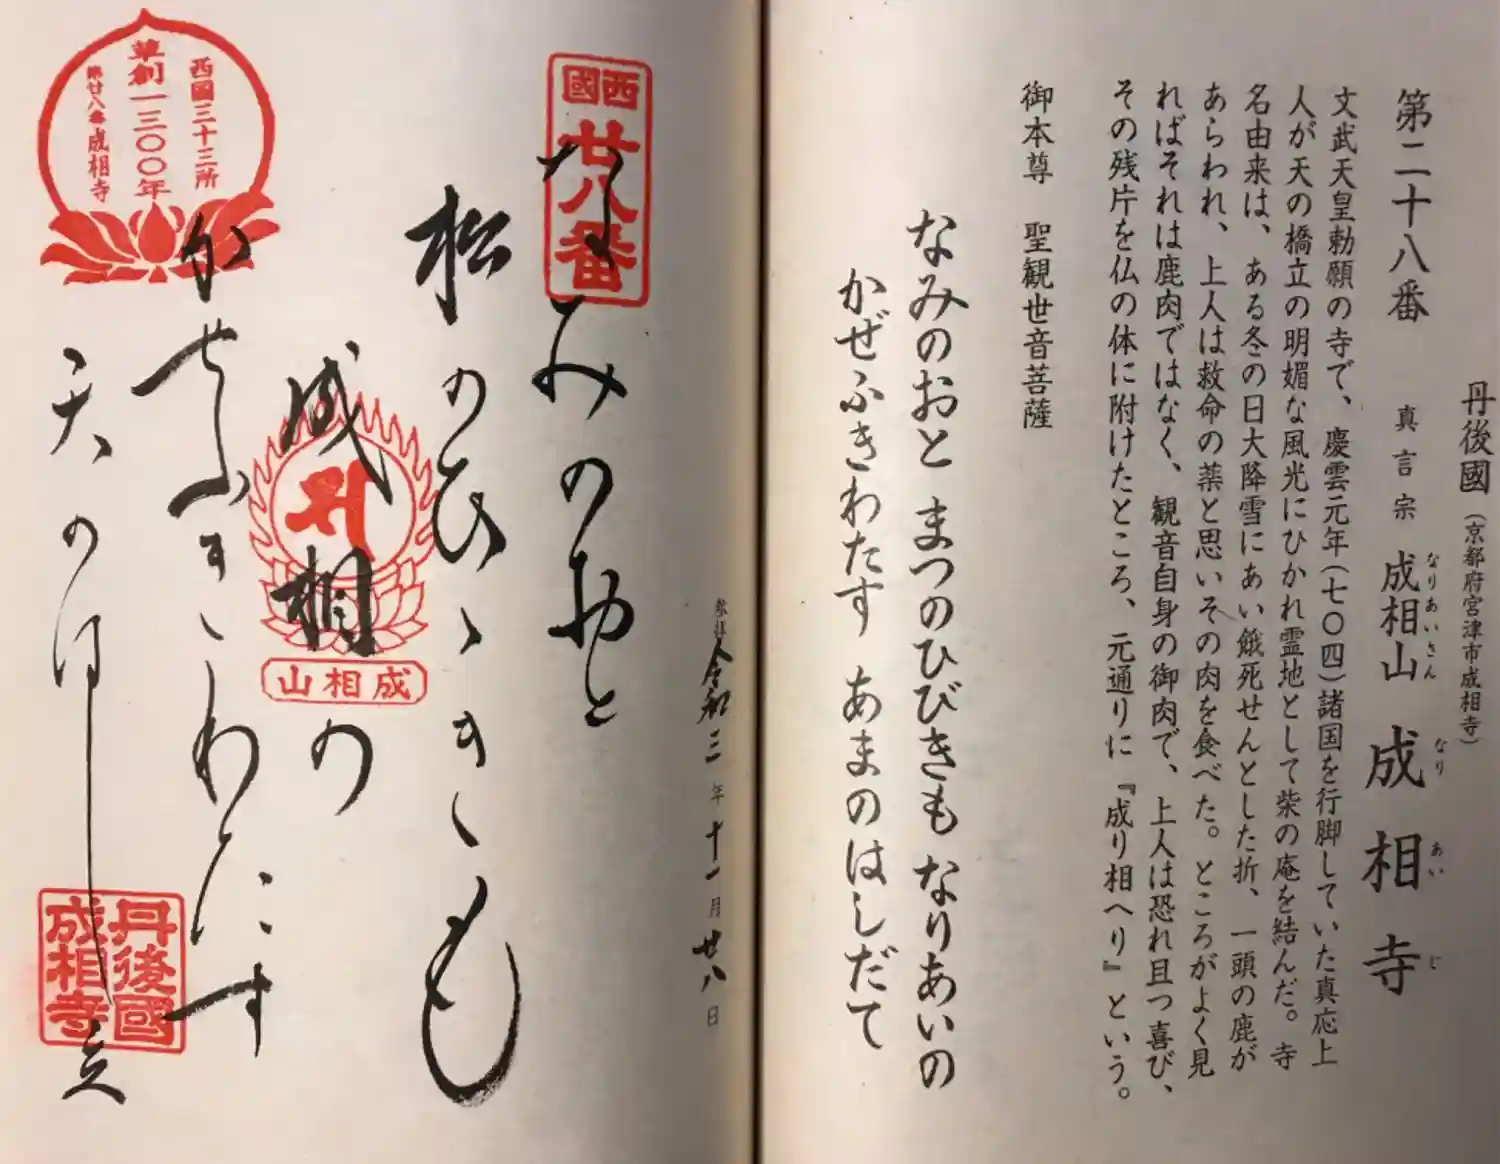 丹後國(京都府宮津市成相寺)
第二十八番 真言宗 成相山 成相寺
なりあいさん なりあいじ
文武天皇勅願の寺で、慶雲元年(七〇四)諸国を行脚していた真応上
人が天の橋立の明媚な風光にひかれ霊地として柴の庵を結んだ。寺
名由来は、ある冬の日大降雪にあい餓死せんとした折、一頭の鹿が
あらわれ、上人は救命の薬と思いその肉を食べた。ところがよく見
ればそれは鹿肉ではなく、観音自身の御肉で、上人は恐れ且つ喜び、
その残片を仏の体に附けたところ、元通りに『成り相へり』という。
御本尊 聖観世音菩薩
なみのおと まつのひびきも なりあいの
かぜふきわたす あまのはしだて
参拝 令和三年十一月廿八日
西國
廿八番
なみのおと
松のひゝきも
成相の
かせふきわたす
天のはし立
成相山
西国三十三所
草創一三〇〇年
第廿八番成相寺
丹後國
成相寺